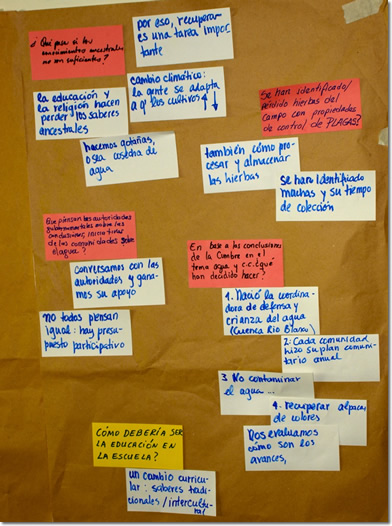 ¿Qué pasa si los
conocimientos ancestrales
no son suficientes?
por eso, recuperar
es una tarea impor
tante
cambio climático:
la gente se adapta
a q' los cultivos ↑↓
la educación y
la religión hacen
perder los saberes
ancestrales
hacemos qotañas,
o sea cosecha de
agua
Se han identificado/
perdido hierbas del
campo con propiedades
de control de PLAGAS?
también cómo pro-
cesar y almacenar
las hierbas
se han identificado
muchas y su tiempo
de colección
Que piensan las autoridades
sobre las
conclusiones, iniciativas
de las comunidades sobre
el agua?
conversamos con las
autoridades y gana-
mos su apoyo
no todos piensan
igual: hay presu-
puesto participativo
En base a las conclusiones
de la Cumbre en el
tema agua y c.c. ¿qué
han decidido hacer?
1. Nació la coordina-
dora de defensa y
crianza del agua
(Cuenca Río Blanco)
2: Cada comunidad
hizo su plan comuni-
tario anual
3 No contaminar
el agua ...
4. recuperar alpacas
de colores
Nos evaluamos
cómo son los
avances,
CÓMO DEBERÍA SER
LA EDUCACIÓN EN
LA ESCUELA?
un cambio curricu-
lar: saberes tradi-
cionales / intercultu-
ral